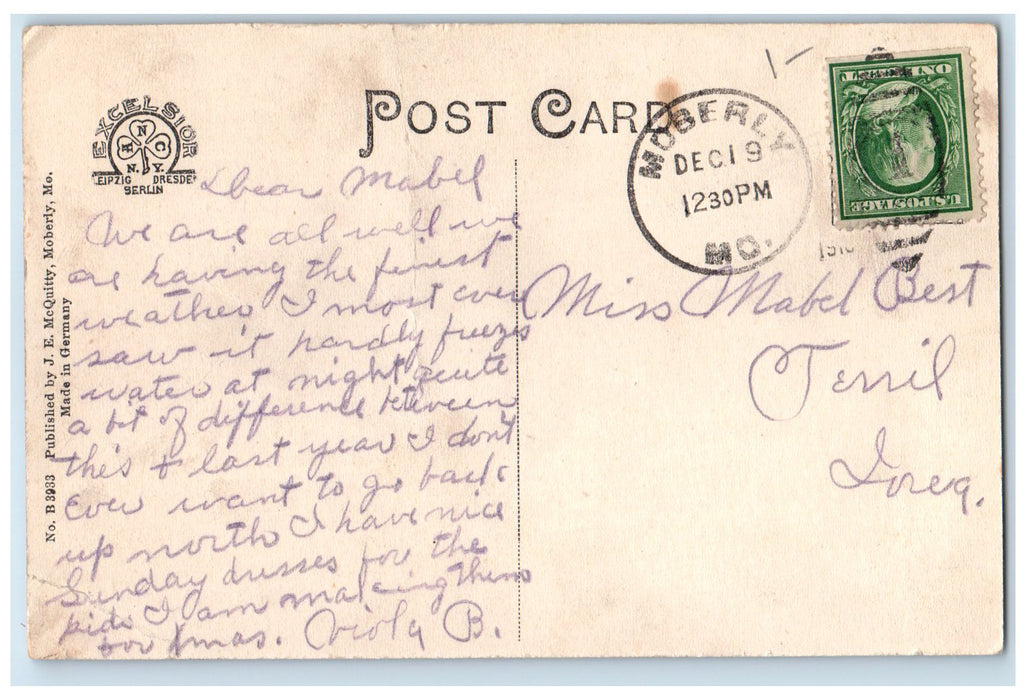 POST CARD
EXCELSIOR
N
A C
N.Y.
LEIPZIG DRESDEN
BERLIN
No. B 3933 Published by J. E. McQuitty, Moberly, Mo.
Made in Germany
MOBERLY
DEC 19
1230 PM
MO.
191
ONE
U.S. POSTAGE
Dear Mabel
We are all well we
are having the finest
weather I most ever
saw it hardly freezes
water at night quite
a bit of difference between
this + last year I don't
ever want to go back
up north I have nice
Sunday dresses for the
kids I am making them
for Xmas. Viola B.
Miss Mabel Best
Terril
Iowa.